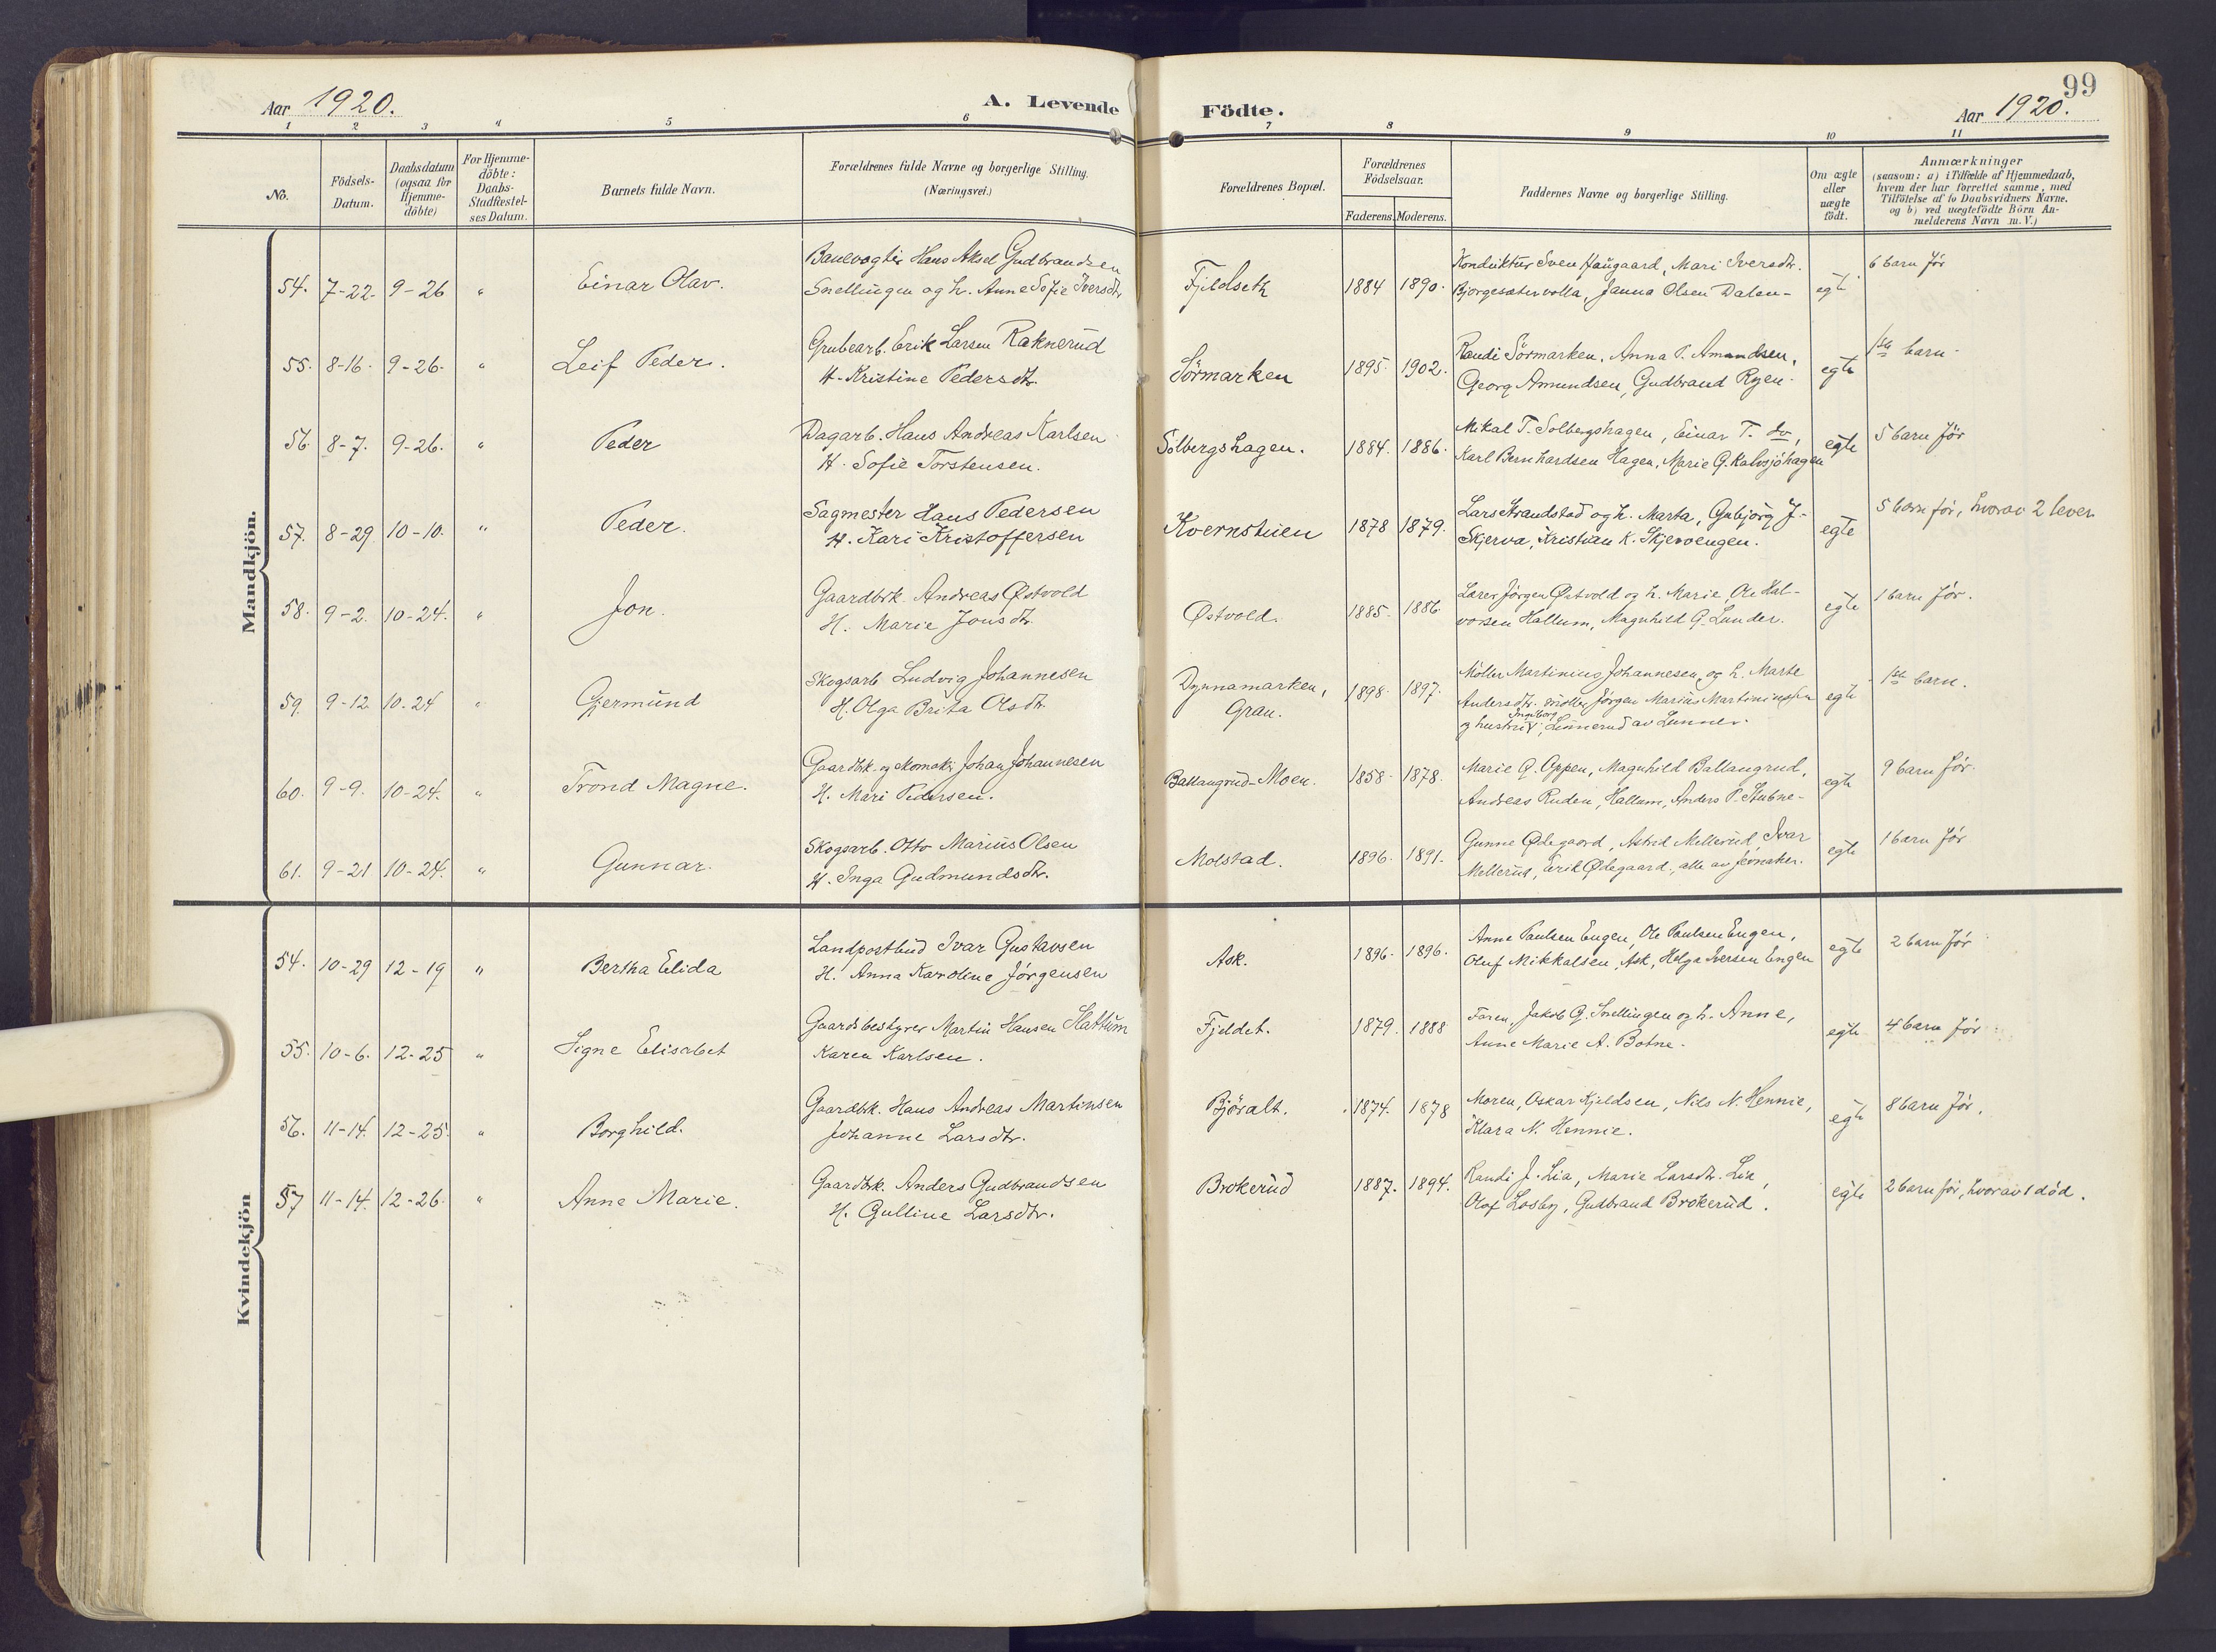 Aar 1920.
A. Levende
Födte.
99
Aar 1920.
1 2 3 4 5 6 7 8 9 10 11
No.
Födsels-Datum.
Daabsdatum (ogsaa for Hjemme-döbte)
For Hjemme-döbte: Daabs-Stadfestel-ses Datum.
Barnets fulde Navn.
Forældrenes fulde Navne og borgerlige Stilling. (Næringsvei.)
Forældrenes Bopæl.
Forældrenes Födselsaar.
Faderens. Moderens.
Faddernes Navne og borgerlige Stilling.
Om ægte eller uægte födt.
Anmærkninger
(saasom: a) i Tilfælde af Hjemmedaab,
hvem der har forrettet samme, med
Tilföielse af to Daabsvidners Navne.
og b) ved uægtefödte Börn An-
melderens Navn m. V.)
Mandkjön.
54. 7-22. 9-26 " Einar Olav. Banevogter Hans Aksel Gudbrandsen Fjeldseth 1884 1890. Konduktør Sven Haugaard, Mari Iversdtr. egte 6 barn før
Snellingen og h. Anne Sofie Iversdtr. Bjørgesætervolla, Janna Olsen Dalen-
55. 8-16. 9-26. " Leif Peder. Grubearb. Erik Larsen Raknerud Sörmarken 1895. 1902. Randi Sörmarken, Anna P. Amundsen, egte 1ste barn.
H. Kristine Pedersdtr. Georg Amundsen, Gudbrand Ryen.
56. 8-7. 9-26. " Peder Dagarb. Hans Andreas Karlsen Solbergshagen. 1884. 1886. Mikal T. Solbergshagen, Einar T. do, egte 5 barn før
H. Sofie Torstensen. Karl Bernhardsen Hagen, Marie G. Kalvsjöhagen
57. 8-29 10-10. " Peder. Sagmester Hans Pedersen Kvernstuen 1878 1879. Lars Strandstad og h. Marta, Gubjørg J. egte 5 barn før, hvorav 2 lever
H. Kari Kristoffersen Skjerva, Kristian K. Skjervengen.
58. 9-2. 10-24. " Jon. Gaardbrk. Andreas Østvold Østvold. 1885. 1886 Lærer Jørgen Østvold og h. Marie, Ole Hal- egte 1 barn før.
H. Marie Jonsdtr. vorsen Hallum, Magnhild G. Lunder.
59. 9-12 10-24 " Gjermund Skogsarb Ludvig Johannesen Dynnamarken, Gran. 1898. 1897. Møller Martinius Johannesen og h. Marte egte 1ste barn.
H. Olga Brita Olsdtr. Andersdtr. møller Jørgen Marius Martiniussen
og hustru Ingeborg, Linnerud av Lunner.
60. 9-9. 10-24. " Trond Magne. Gaardbrk. og skomaker Johan Johannesen Ballangrud-Moen. 1858. 1878. Marie G. Oppen, Magnhild Ballangrud, egte 9 barn før.
H. Mari Pedersen. Andreas Ruden, Hallum, Anders P. Stubne-
61. 9-21 10-24. " Gunnar. Skogsarb. Otto Marius Olsen Molstad. 1896. 1891. Gunne Ødegaard, Astrid Mellerud, Ivar egte 1 barn før
H. Inga Gudmundsdtr. Mellerud, Erik Ødegaard, alle av Jevnaker.
Kvindekjön
54. 10-29 12-19 " Bertha Elida Landpostbud Ivar Gustavsen Ask. 1896. 1896. Anne Paulsen Engen, Ole Paulsen Engen, egte 2 barn før
H. Anna Karoline Jørgensen Oluf Mikkalsen, Ask, Helga Iversen Engen
55. 10-6. 12-25 " Signe Elisabet Gaardsbestyrer Martin Hansen Hattum Fjeldet. 1879. 1888 Faren, Jakob G. Snellingen og h. Anne, egte 4 barn før
Karen Karlsen. Anne Marie A. Botne.
56. 11-14. 12-25. " Borghild. Gaardbrk. Hans Andreas Martinsen Björalt. 1874. 1878 Moren, Oskar Kjeldsen, Nils N. Hennie, egte 8 barn før.
Johanne Larsdtr. Klara N. Hennie.
57 11-14. 12-26. " Anne Marie. Gaardbrk. Anders Gudbrandsen Brokerud 1887. 1894. Randi J. Lia, Marie Larsdtr. Lia, egte 2 barn før, hvorav 1 död.
H. Gulline Larsdtr. Olaf Losby, Gudbrand Brokerud.